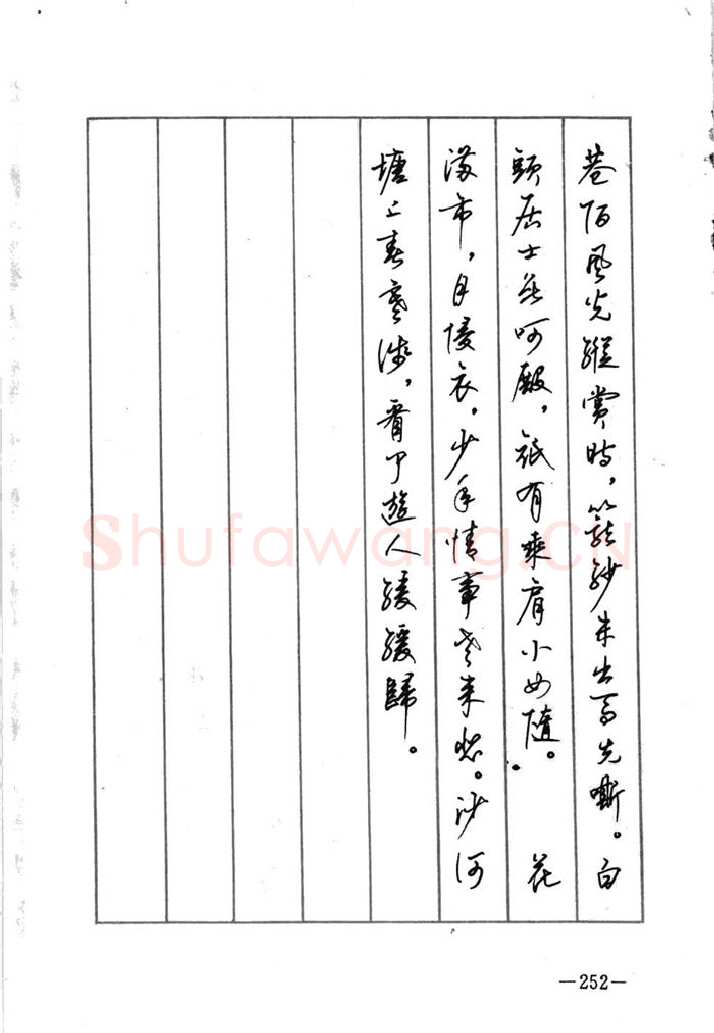 巷陌風光縱賞時，籠紗未出馬先嘶。白
頭居士無呵殿，祇有乘肩小女隨。花
滿市，月侵衣。少年情事老來悲。沙河
塘上春寒淺，看了遊人緩緩歸。
Shufawang.CN
—252—